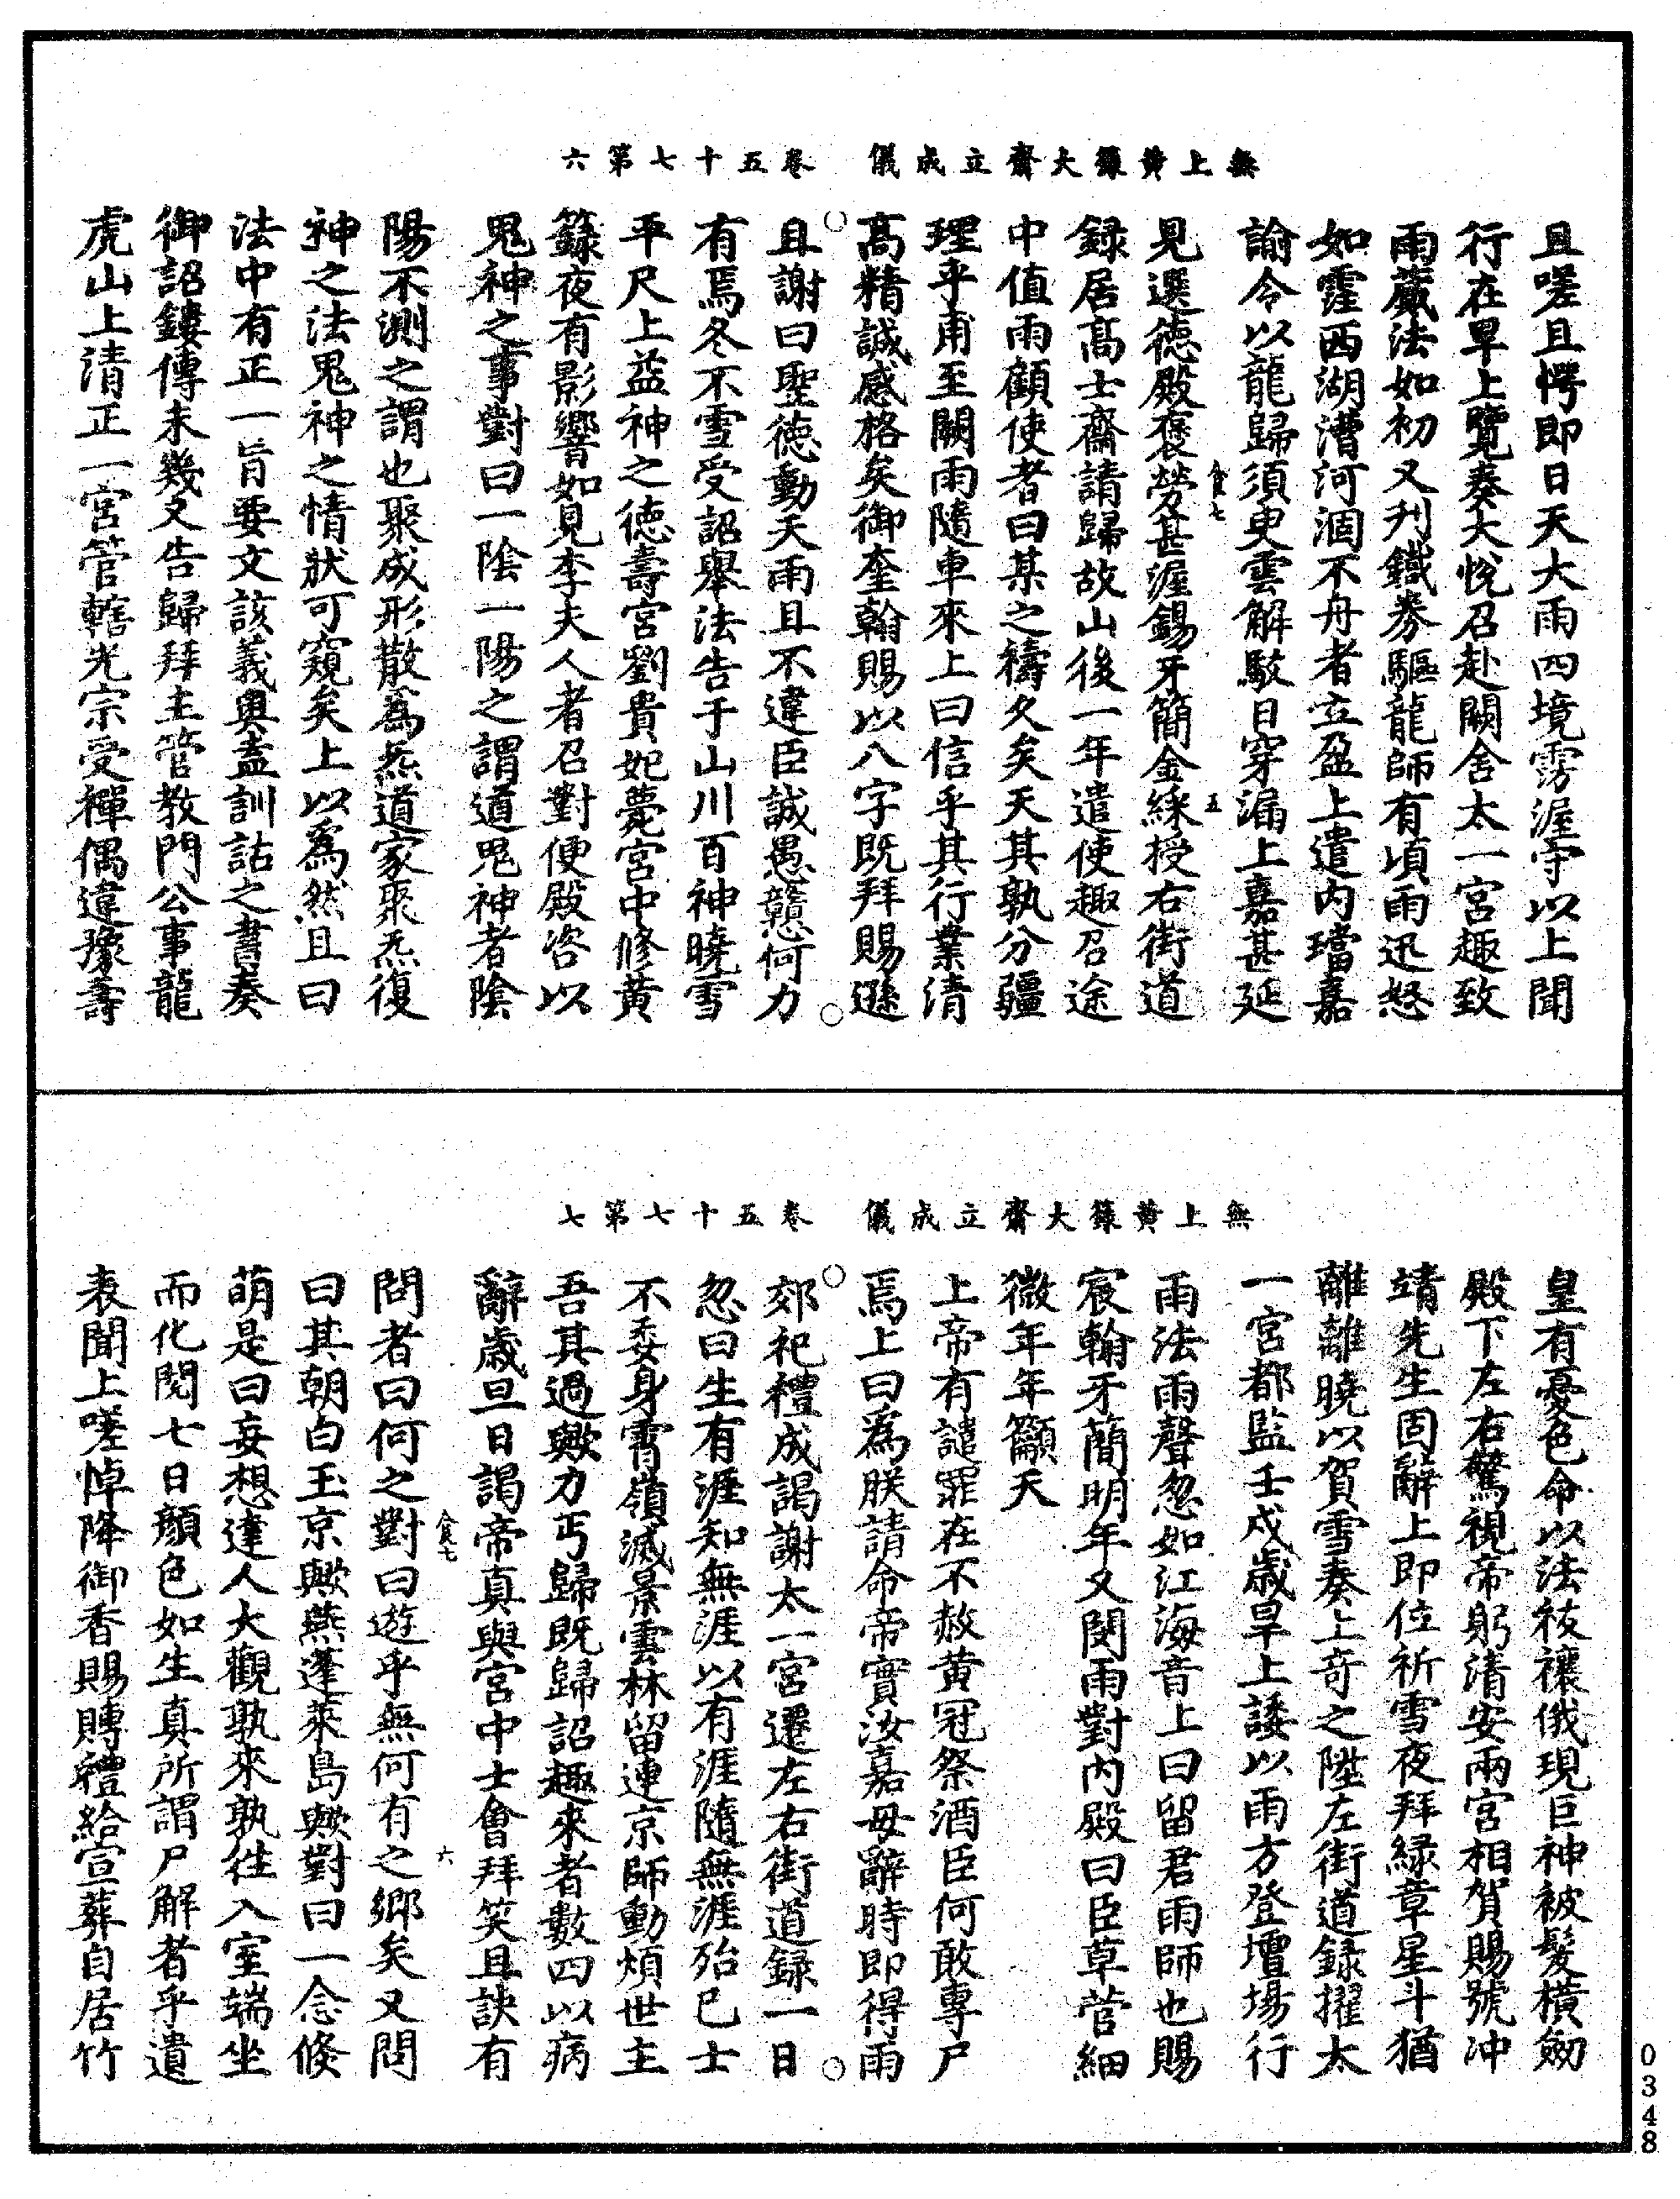 無上黃籙大齋立成儀　卷五十七第六
且嗟且愕即日天大雨四境霶渥守以上聞
行在旱上覽奏大悅召赴闕舍太一宮趣致
雨葳法如初又刋鐵券驅龍師有頃雨迅怒
如霔西湖漕河涸不舟者立盈上遣內璫嘉
諭令以龍歸須臾雲解駮日穿漏上嘉甚延
見選德殿褒勞甚渥錫牙簡金綵授右街道
錄居高士齋請歸故山後一年遣使趣召途
中值雨顧使者曰某之禱久矣天其孰分疆
理乎甫至闕雨隨車來上曰信乎其行業清
高精誠感格矣御奎翰賜以八字既拜賜遜
且謝曰聖德動天雨且不違臣誠愚戇何力
有焉冬不雪受詔舉法告于山川百神曉雪
平尺上益神之德壽宮劉貴妃薨宮中修黃
籙夜有影響如見李夫人者召對便殿咨以
鬼神之事對曰一陰一陽之謂道鬼神者陰
陽不測之謂也聚成形散為炁道家聚炁復
神之法鬼神之情狀可窺矣上以為然且曰
法中有正一旨要文該義奧盍訓詁之書奏
御詔鏤傳未幾又告歸拜主管教門公事龍
虎山上清正一宮管轄光宗受禪偶違豫壽
食七
五
無上黃籙大齋立成儀　卷五十七第七
皇有憂色命以法祓禳俄現巨神被髮橫劒
殿下左右驚視帝躬清安兩宮相賀賜號沖
靖先生固辭上即位祈雪夜拜綠章星斗猶
離離曉以賀雪奏上奇之陞左街道錄擢太
一宮都監壬戍歲旱上諉以雨方登壇場行
雨法雨聲忽如江海音上曰留君雨師也賜
宸翰牙簡明年又閔雨對內殿曰臣草菅細
微年年籲天
上帝有譴罪在不赦黃冠祭酒臣何敢專尸
焉上曰為朕請命帝實汝嘉毋辭時即得雨
郊祀禮成謁謝太一宮遷左右街道錄一日
忽曰生有涯知無涯以有涯隨無涯殆已士
不委身霄嶺滅景雲林留連京師動煩世主
吾其過歟力丐歸既歸詔趣來者數四以病
辭歲旦日謁帝真與宮中士會拜笑且訣有
問者曰何之對曰遊乎無何有之鄉矣又問
曰其朝白玉京歟燕蓬萊島歟對曰一念倏
萌是曰妄想達人大觀孰來孰徃入室端坐
而化閱七日顏色如生真所謂尸解者乎遺
表聞上嗟悼降御香賜賻禮給宣葬自居竹
食七
六
0348